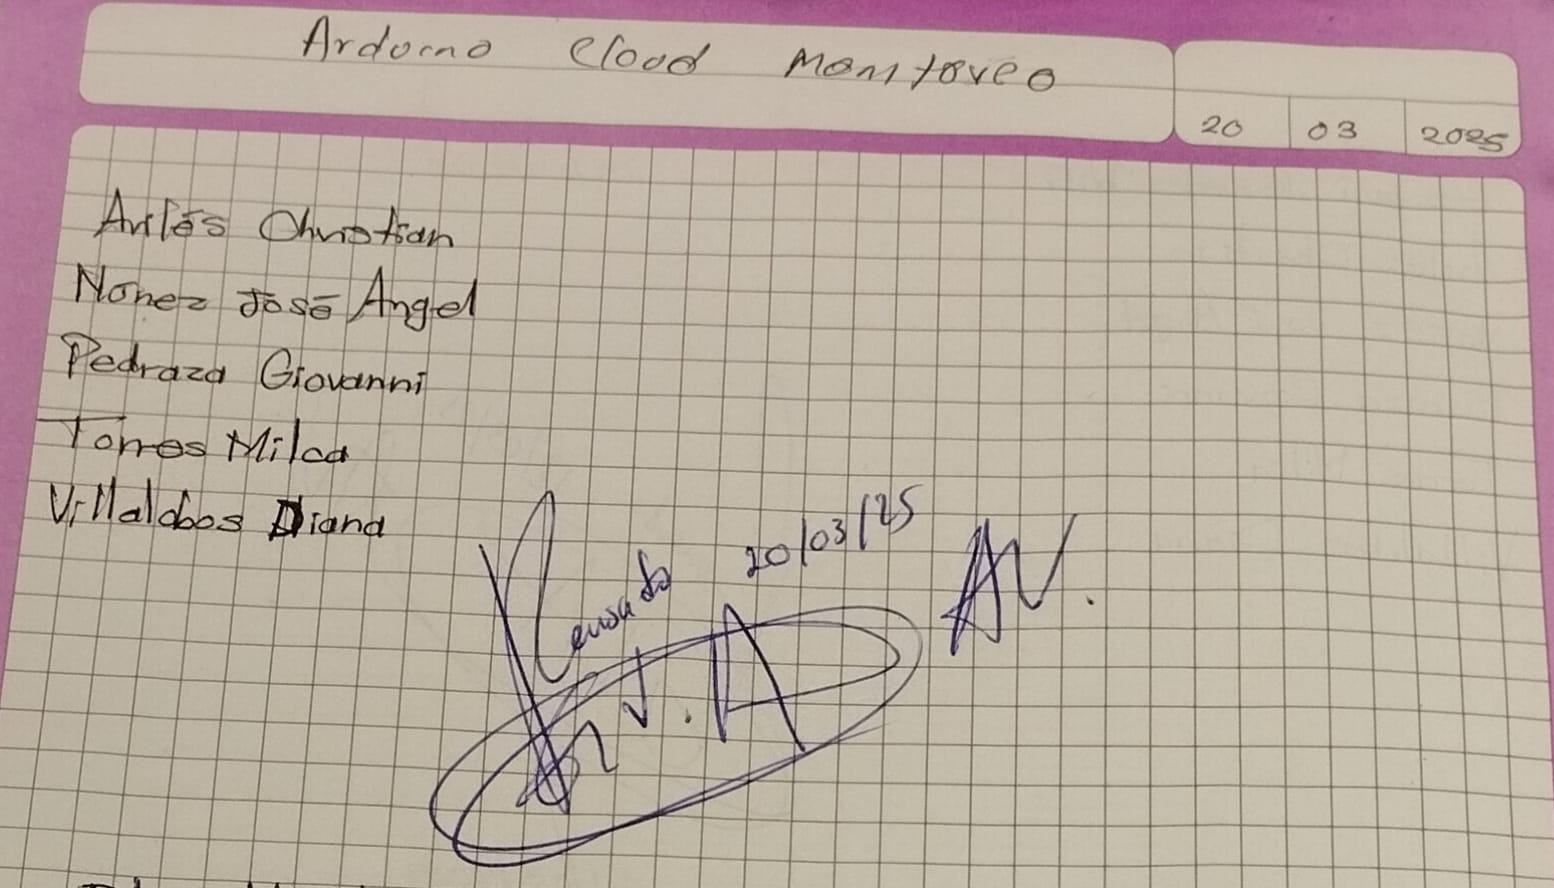 Arduino Cloud Monitoreo
20 03 2025
Avilés Christian
Nonez José Angel
Pedraza Giovanni
Torres Milca
Villalobos Diana
Revisado 20/03/25 AV.